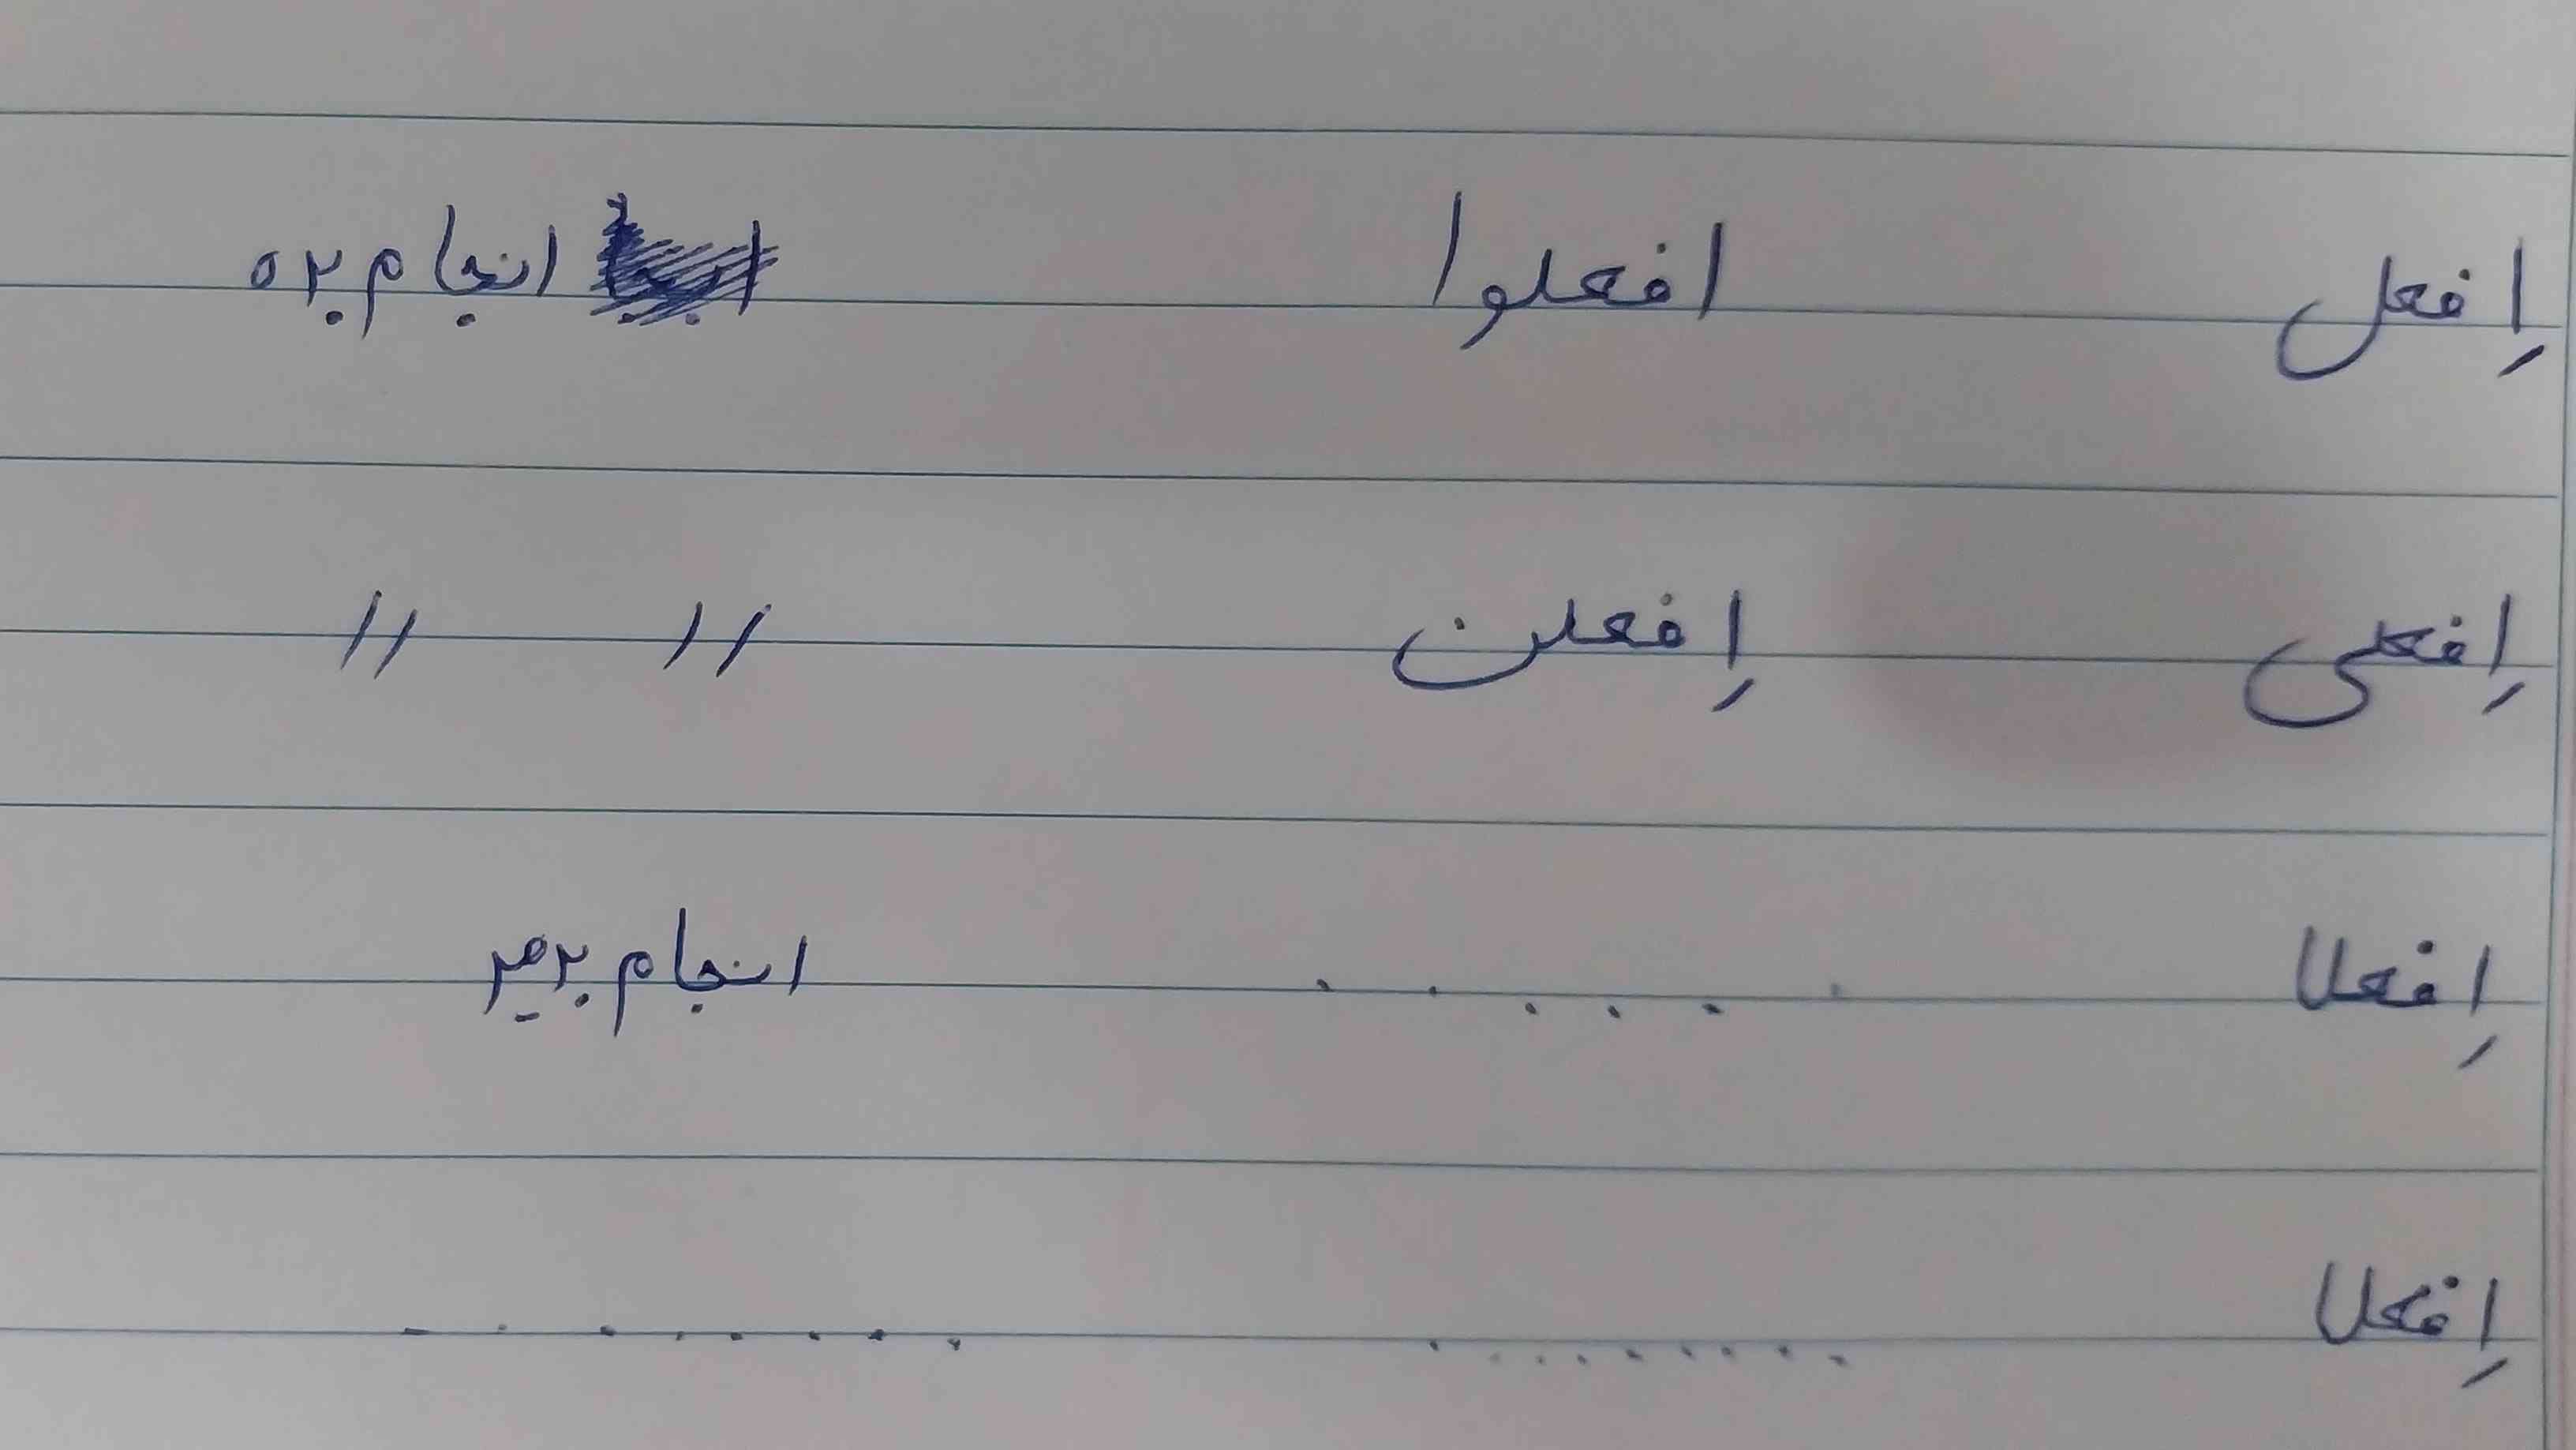 اِفعل افعلوا انجام بده
اِفعلی اِفعلن // //
اِفعلا . . . . . . انجام بدهید
اِفعلا . . . . . . . . . . . . . . . .